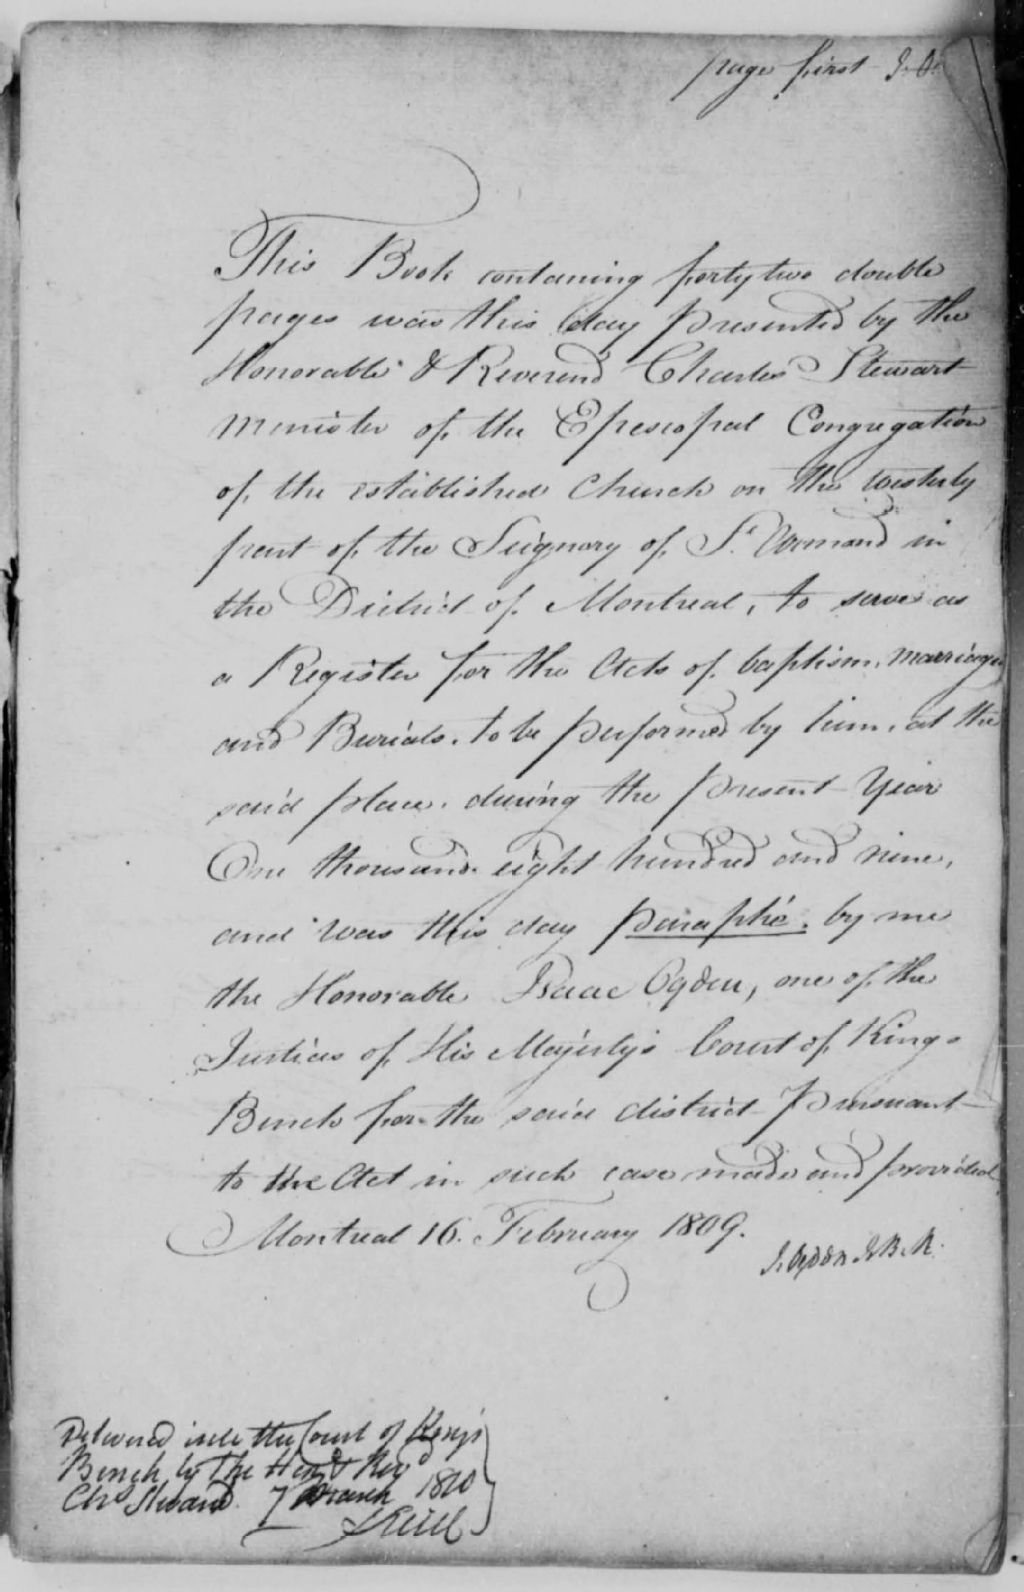 page first I. O.
This Book containing forty two double
pages was this day Presented by the
Honorable & Reverend Charles Stewart
Minister of the Episcopal Congregation
of the established Church on the westerly
front of the Seignory of St. Armand in
the District of Montreal, to serve as
a Register for the Acts of baptism, marriages
and Burials, to be performed by him, at the
said place, during the present Year
One thousand eight hundred and nine,
and was this day paraphé, by me
the Honorable Isaac Ogden, one of the
Justices of His Majesty's Court of Kings
Bench for the said district Pursuant
to the Act in such case made and provided
Montreal 16. February 1809.
I. Ogden J. B. R.
Delivered into the Court of Kings
Bench by The Hon. & Revd
Chs Stewart 7 March 1810